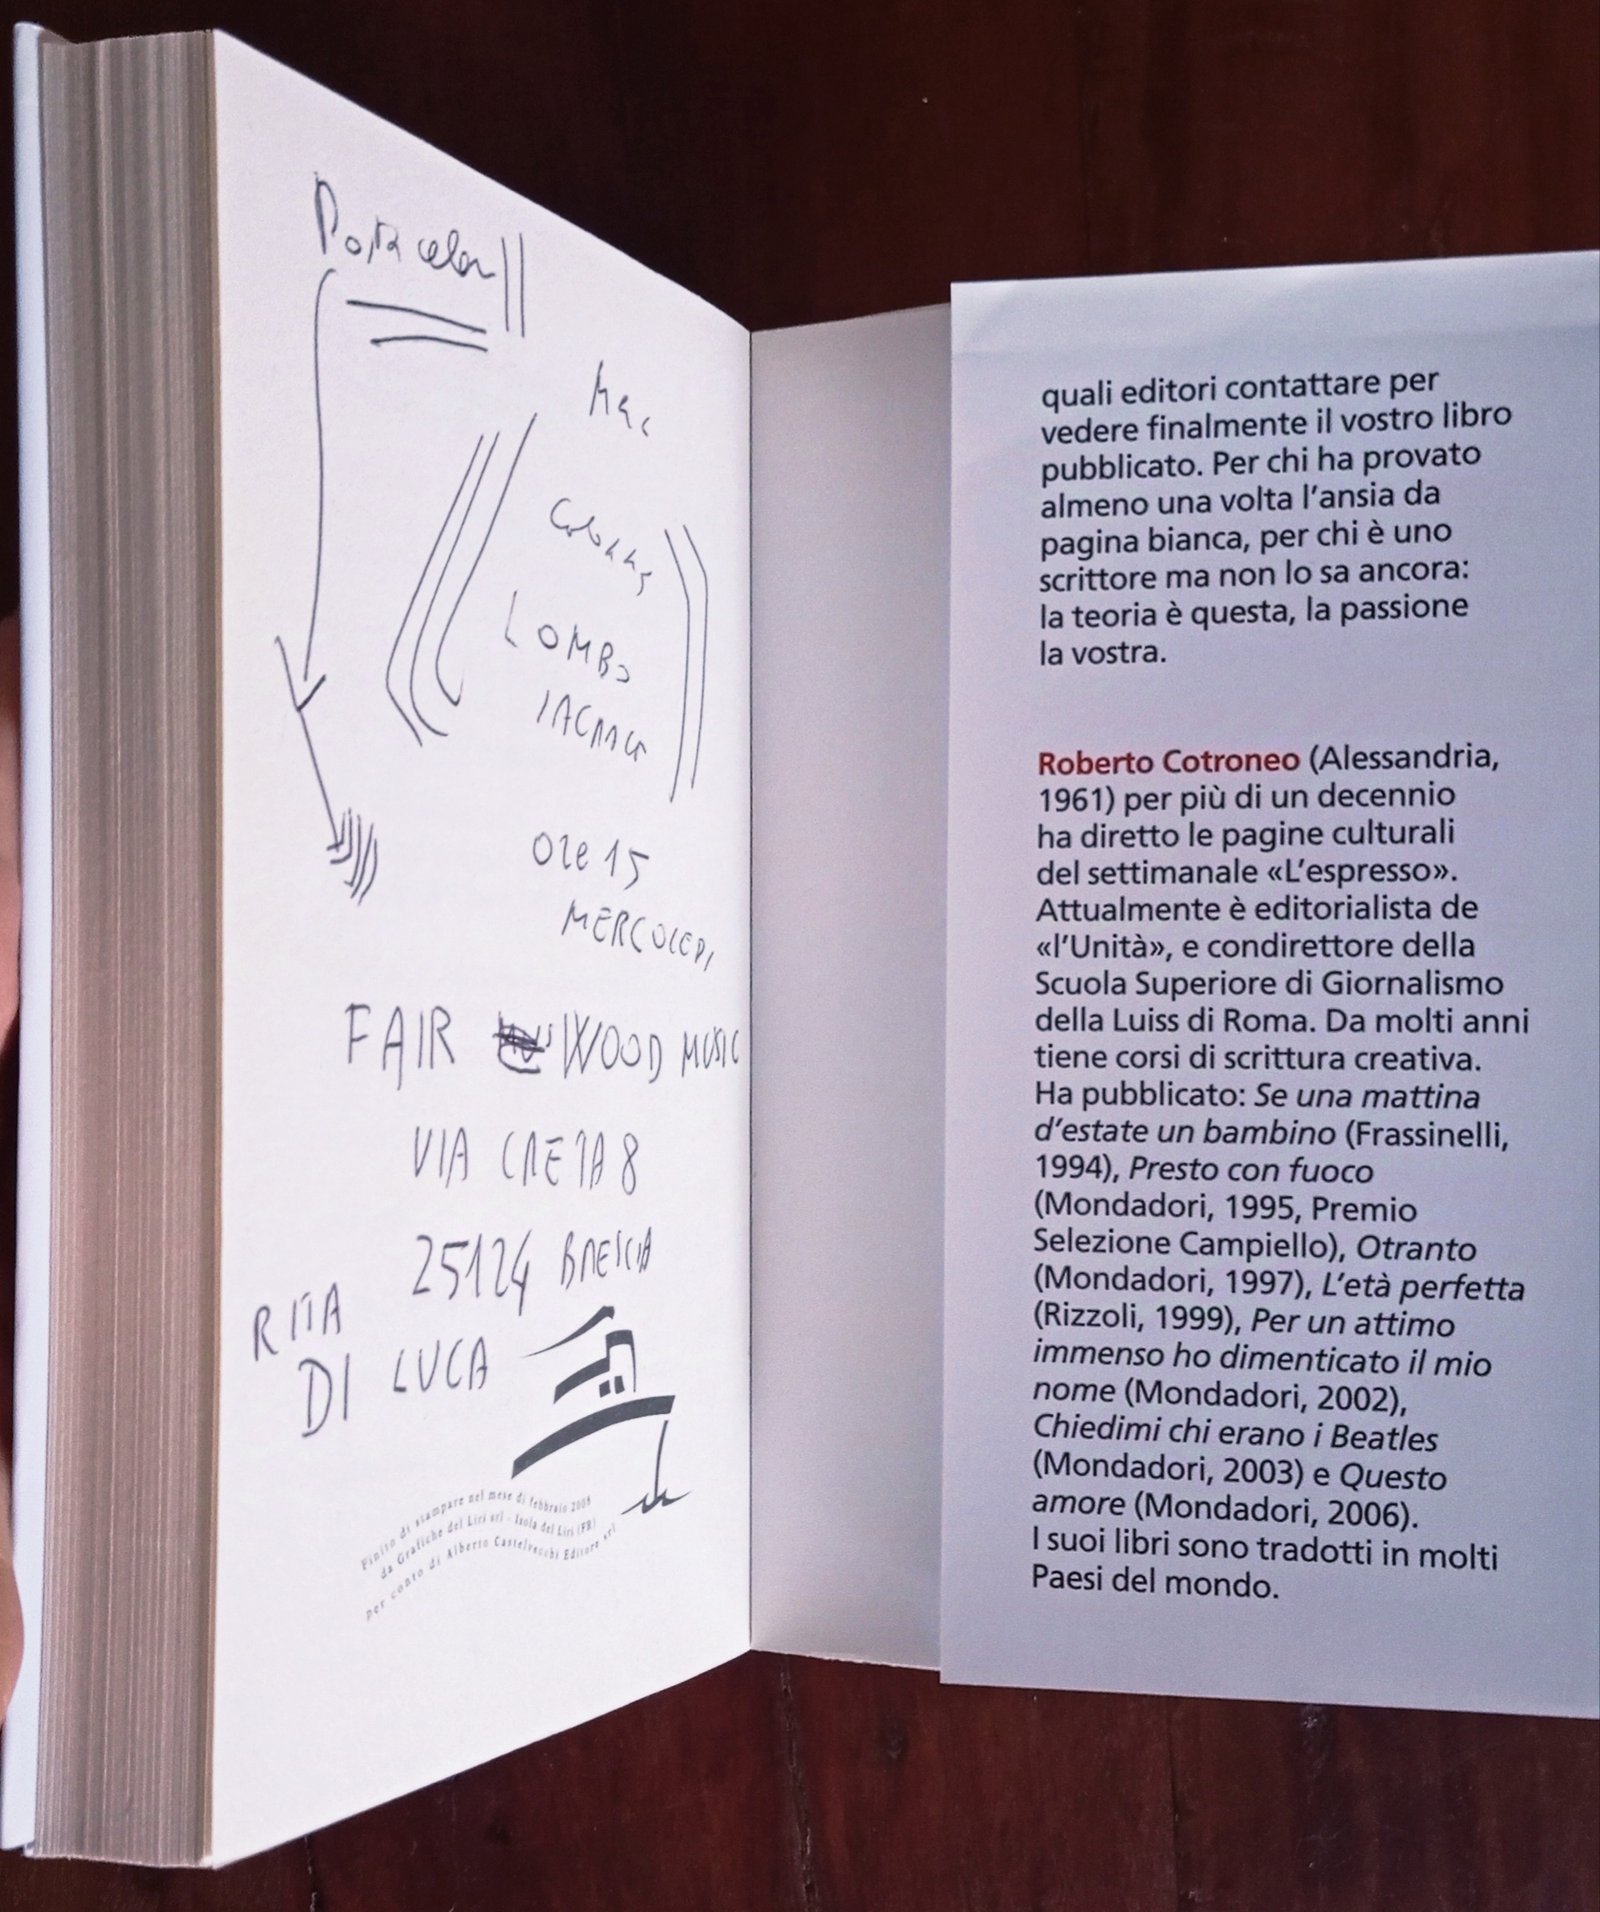 ORE 15
MERCOLEDI
FAIR WOOD MUSIC
VIA CRETA 8
25124 BRESCIA
RITA
DI LUCA
Finito di stampare nel mese di febbraio 2008
da Grafiche del Liri srl - Isola del Liri (FR)
per conto di Alberto Castelvecchi Editore srl
quali editori contattare per
vedere finalmente il vostro libro
pubblicato. Per chi ha provato
almeno una volta l'ansia da
pagina bianca, per chi è uno
scrittore ma non lo sa ancora:
la teoria è questa, la passione
la vostra.
Roberto Cotroneo (Alessandria,
1961) per più di un decennio
ha diretto le pagine culturali
del settimanale «L'espresso».
Attualmente è editorialista de
«l'Unità», e condirettore della
Scuola Superiore di Giornalismo
della Luiss di Roma. Da molti anni
tiene corsi di scrittura creativa.
Ha pubblicato: Se una mattina
d'estate un bambino (Frassinelli,
1994), Presto con fuoco
(Mondadori, 1995, Premio
Selezione Campiello), Otranto
(Mondadori, 1997), L'età perfetta
(Rizzoli, 1999), Per un attimo
immenso ho dimenticato il mio
nome (Mondadori, 2002),
Chiedimi chi erano i Beatles
(Mondadori, 2003) e Questo
amore (Mondadori, 2006).
I suoi libri sono tradotti in molti
Paesi del mondo.